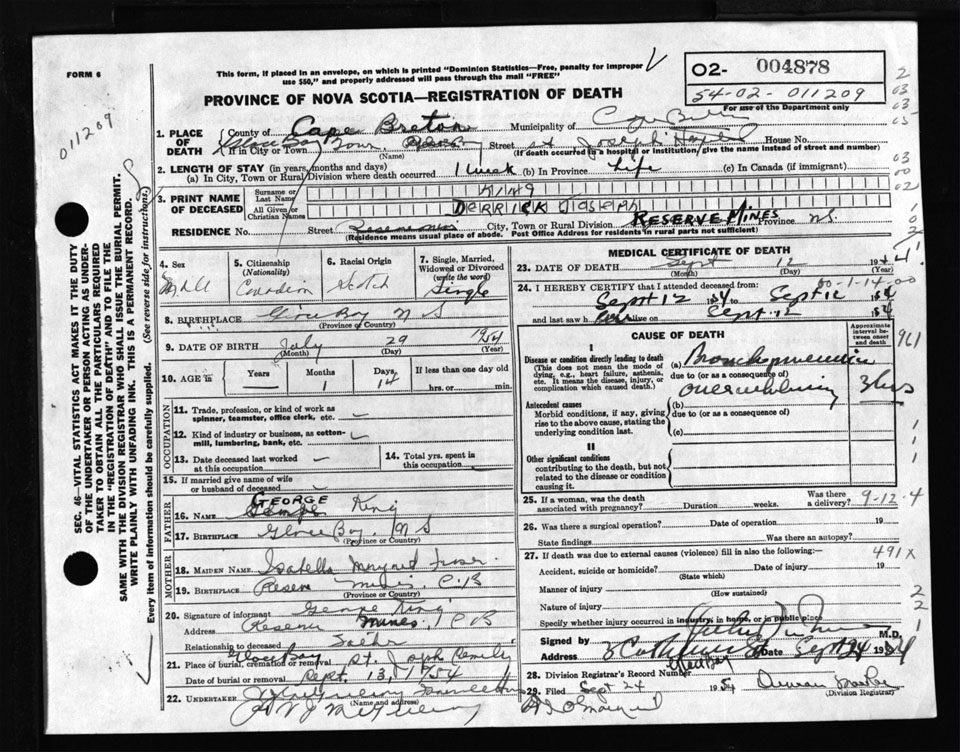 FORM 6
This form, if placed in an envelope, on which is printed "Dominion Statistics—Free, penalty for improper
use $50," and properly addressed will pass through the mail "FREE"
O2- 004878
54-02-011209
For use of the Department only
PROVINCE OF NOVA SCOTIA—REGISTRATION OF DEATH
011209
1. PLACE OF DEATH
County of Cape Breton Municipality of
If in City or Town Glace Bay (Name) Street St Joseph's Hospital House No.
(If death occurred in a hospital or institution, give the name instead of street and number)
2. LENGTH OF STAY (in years, months and days)
(a) In City, Town or Rural Division where death occurred 1 week (b) In Province Life (c) In Canada (if immigrant)
3. PRINT NAME OF DECEASED
Surname or Last Name KING
All Given or Christian Names DERRICK JOSEPH
RESIDENCE No. Street Reserve City, Town or Rural Division RESERVE MINES Province N.S.
(Residence means usual place of abode. Post Office Address for residents in rural parts not sufficient)
4. Sex Male
5. Citizenship (Nationality) Canadian
6. Racial Origin Scotch
7. Single, Married, Widowed or Divorced (write the word) Single
8. BIRTHPLACE Glace Bay N S
(Province or Country)
9. DATE OF BIRTH July 29 1954
(Month) (Day) (Year)
10. AGE in Years Months Days If less than one day old
— 1 14 hrs. or min.
OCCUPATION
11. Trade, profession, or kind of work as
spinner, teamster, office clerk, etc.
12. Kind of industry or business, as cotton-
mill, lumbering, bank, etc.
13. Date deceased last worked
at this occupation
14. Total yrs. spent in
this occupation
15. If married give name of wife
or husband of deceased
FATHER
GEORGE
16. NAME George King
17. BIRTHPLACE Glace Bay, N S
(Province or Country)
MOTHER
18. MAIDEN NAME Isabella Margaret Fraser
19. BIRTHPLACE Reserve Mines, C.B
(Province or Country)
20. Signature of informant George King
Address Reserve Mines, C B
Relationship to deceased Father
Glace Bay
21. Place of burial, cremation or removal St. Joseph
Date of burial or removal Sept. 13, 1954
22. UNDERTAKER
(Name and address)
MEDICAL CERTIFICATE OF DEATH
23. DATE OF DEATH Sept 12 19
(Month) (Day) (Year)
24. I HEREBY CERTIFY that I attended deceased from:
Sept 12 54 to Sept 12 54
and last saw h alive on Sept. 12 54
CAUSE OF DEATH
Approximate interval between onset and death
I
Disease or condition directly leading to death
(This does not mean the mode of
dying, e.g., heart failure, asthenia,
etc. It means the disease, injury, or
complication which caused death.)
(a) Bronchopneumonia
due to (or as a consequence of)
overwhelming 3 hrs
961
Antecedent causes
Morbid conditions, if any, giving
rise to the above cause, stating the
underlying condition last.
(b)
due to (or as a consequence of)
(c)
II
Other significant conditions
contributing to the death, but not
related to the disease or condition
causing it.
25. If a woman, was the death
associated with pregnancy? Duration weeks. Was there a delivery? 9-12-4
26. Was there a surgical operation? Date of operation 19
State findings Was there an autopsy?
27. If death was due to external causes (violence) fill in also the following: 491X
Accident, suicide or homicide? Date of injury 19
(State which)
Manner of injury
(How sustained)
Nature of injury
Specify whether injury occurred in industry, in home, or in public place
Signed by M.D.
Address Date Sept 24 1954
Glace Bay
28. Division Registrar's Record Number
29. Filed Sept 24 1954
(Division Registrar)
SEC. 46—VITAL STATISTICS ACT MAKES IT THE DUTY
OF THE UNDERTAKER OR PERSON ACTING AS UNDER-
TAKER TO OBTAIN ALL THE PARTICULARS REQUIRED
IN THE "REGISTRATION OF DEATH" AND TO FILE THE
SAME WITH THE DIVISION REGISTRAR WHO SHALL ISSUE THE BURIAL PERMIT.
WRITE PLAINLY WITH UNFADING INK. THIS IS A PERMANENT RECORD.
Every item of information should be carefully supplied. (See reverse side for instructions.)